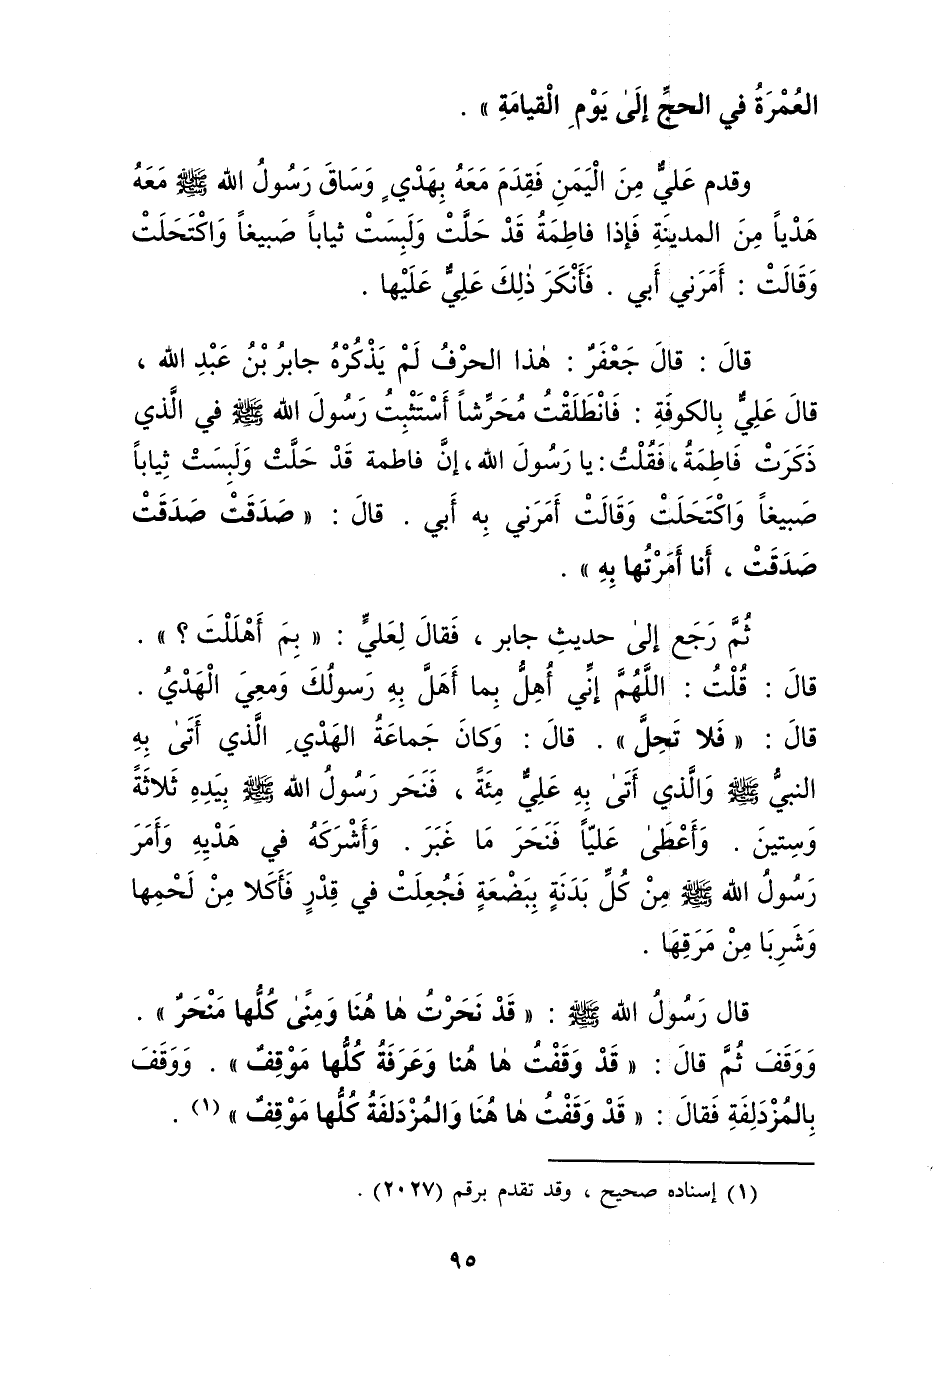 العُمْرَةُ في الحجِّ إلَىٰ يَوْمِ الْقيامَةِ » .
وقدم عَليٌّ مِنَ الْيَمَنِ فَقِدَمَ مَعَهُ بِهَدْيٍ وَسَاقَ رَسُولُ الله ﷺ مَعَهُ
هَدْياً مِنَ المدينَةِ فَإذا فاطِمَةُ قَدْ حَلَّتْ وَلَبِسَتْ ثياباً صَبيغاً وَاكْتَحَلَتْ
وَقَالَتْ : أَمَرَني أَبي . فَأَنْكَرَ ذٰلِكَ عَلِيٌّ عَلَيْها .
قالَ : قالَ جَعْفَرٌ : هٰذا الحرْفُ لَمْ يَذْكُرْهُ جابرُ بْنُ عَبْدِ الله ،
قالَ عَلِيٌّ بِالكوفَةِ : فَانْطَلَقْتُ مُحَرِّشاً أَسْتَثْبِتُ رَسُولَ الله ﷺ في الَّذي
ذَكَرَتْ فَاطِمَةُ، فَقُلْتُ: يا رَسُولَ الله، إنَّ فاطمة قَدْ حَلَّتْ وَلَبِسَتْ ثِياباً
صَبيغاً وَاكْتَحَلَتْ وَقَالَتْ أَمَرَني بِه أَبي . قالَ : « صَدَقَتْ صَدَقَتْ
صَدَقَتْ ، أَنا أَمَرْتُها بِهِ » .
ثُمَّ رَجَع إلىٰ حديثِ جابر ، فَقالَ لِعَليٍّ : « بِمَ أَهْلَلْتَ ؟ » .
قالَ : قُلْتُ : اللَّهُمَّ إنِّي أُهِلُّ بِما أَهَلَّ بِهِ رَسولُكَ وَمعِيَ الْهَدْيُ .
قالَ : « فَلا تَحِلَّ » . قالَ : وَكانَ جَماعَةُ الهَدْيِ الَّذي أَتَىٰ بِهِ
النبيُّ ﷺ وَالَّذي أَتَىٰ بِهِ عَلِيٌّ مِئَةً ، فَنَحَر رَسُولُ الله ﷺ بِيَدِهِ ثَلاثَةً
وَسِتينَ . وَأَعْطَىٰ عَليّاً فَنَحَرَ مَا غَبَرَ . وَأَشْرَكَهُ في هَدْيِهِ وَأَمَرَ
رَسُولُ الله ﷺ مِنْ كُلِّ بَدَنَةٍ بِبَضْعَةٍ فَجُعِلَتْ في قِدْرٍ فَأَكَلا مِنْ لَحْمِها
وَشَرِبَا مِنْ مَرَقِهَا .
قال رَسُولُ الله ﷺ : « قَدْ نَحَرْتُ هٰا هُنَا وَمِنًىٰ كُلُّها مَنْحَرٌ » .
وَوَقَفَ ثُمَّ قالَ : « قَدْ وَقَفْتُ هٰا هُنا وَعَرَفَةُ كُلُّها مَوْقِفٌ » . وَوَقَفَ
بِالمُزْدَلِفَةِ فَقالَ : « قَدْ وَقَفْتُ هٰا هُنَا وَالمُزْدَلفَةُ كُلُّها مَوْقِفٌ » (١) .
(١) إسناده صحيح ، وقد تقدم برقم (٢٠٢٧) .
٩٥